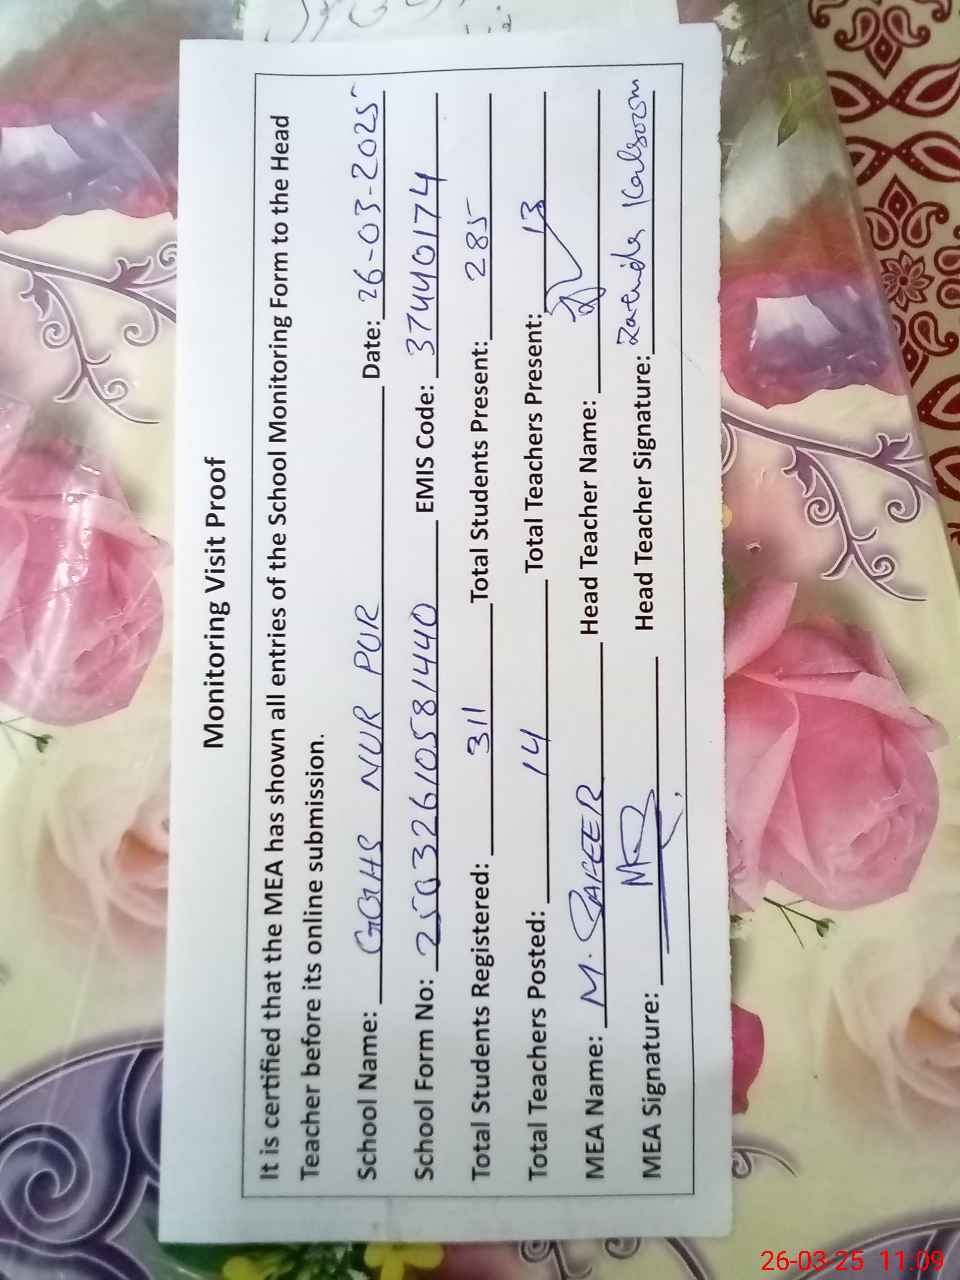 Monitoring Visit Proof
It is certified that the MEA has shown all entries of the School Monitoring Form to the Head
Teacher before its online submission.
School Name: GGHS NUR PUR Date: 26-03-2025
School Form No: 25032610581440 EMIS Code: 37440174
Total Students Registered: 311 Total Students Present: 285
Total Teachers Posted: 14 Total Teachers Present: 13
MEA Name: M. SAFEER Head Teacher Name:
MEA Signature: Head Teacher Signature: Kalsoom
26-03-25 11:09